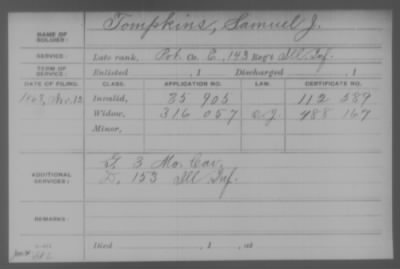 NAME OF SOLDIER: Tompkins, Samuel J.
SERVICE: Late rank, Pvt. Co. E, 143 Reg't Ill Inf.
TERM OF SERVICE: Enlisted , 1 Discharged , 1
DATE OF FILING. CLASS. APPLICATION NO. LAW. CERTIFICATE NO.
Nov. 13 Invalid, 35 905 112 589
Widow, 316 057 488 167
Minor,
ADDITIONAL SERVICES: 3 Mo. Cav.
D, 153 Ill Inf.
REMARKS:
Died , 1 , at